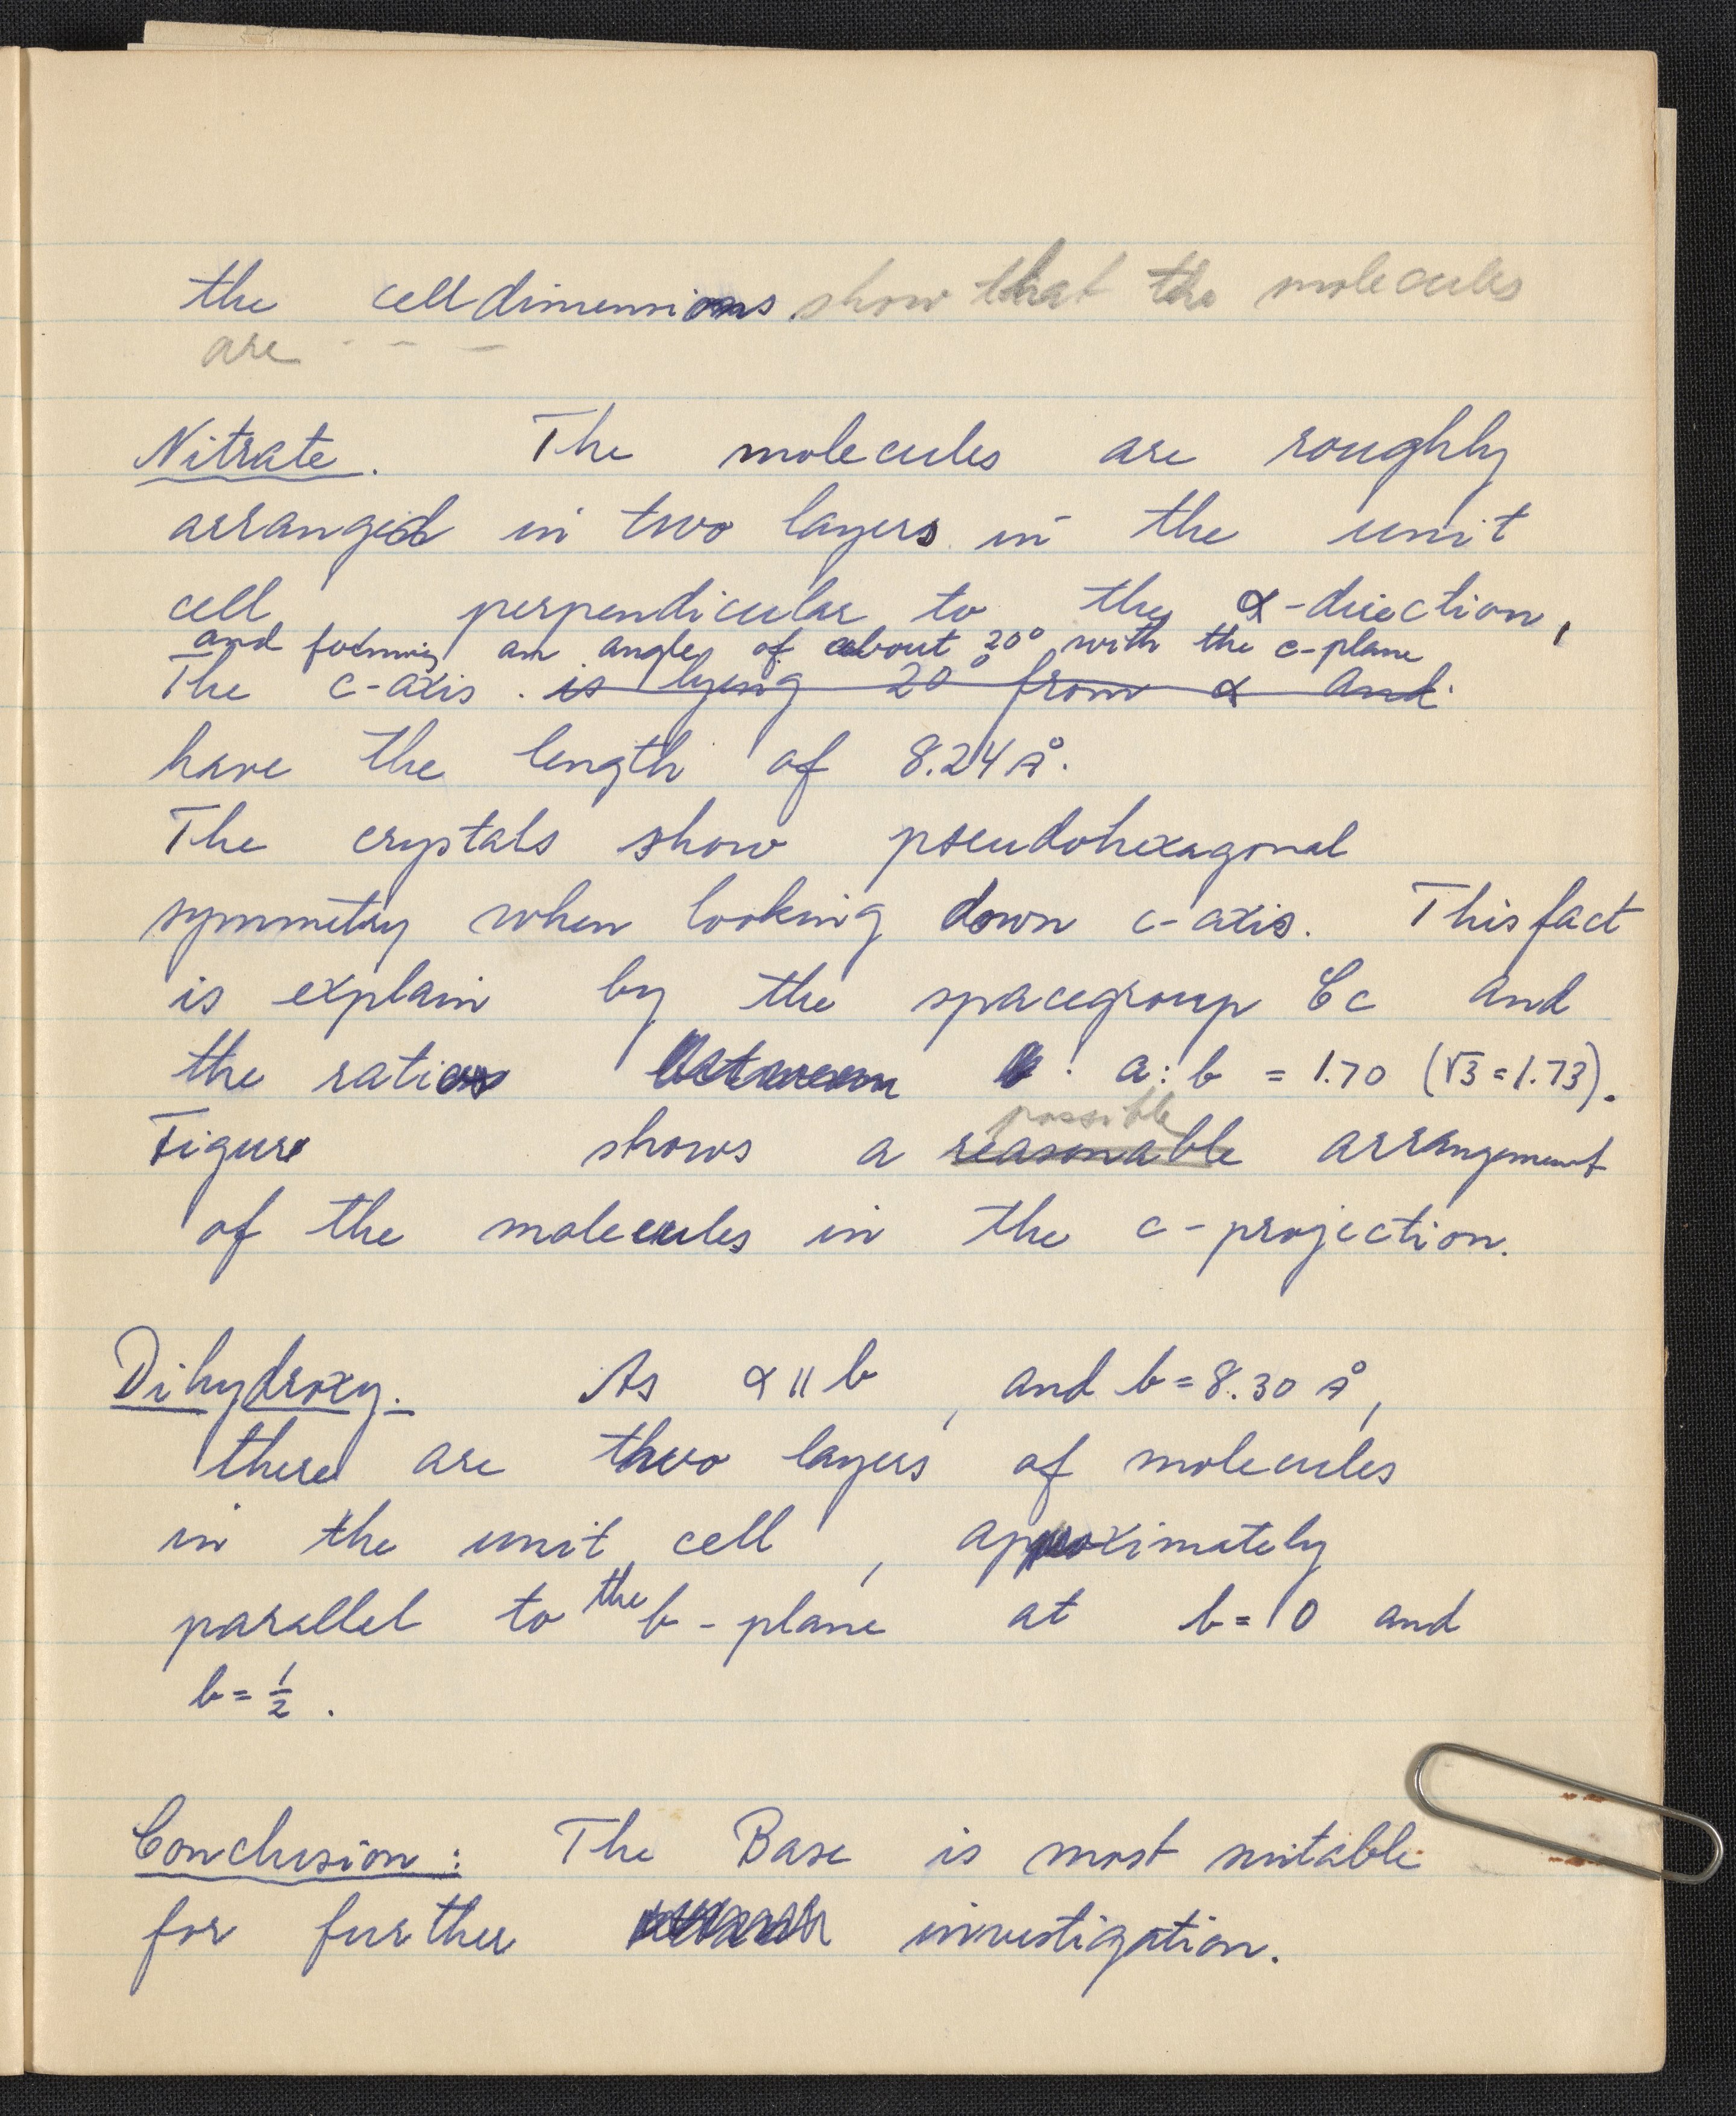 the celldimensions show that the molecules
are - - -
Nitrate. The molecules are roughly
arranged in two layers in the unit
cell perpendicular to the α-direction,
and forming an angle of about 20° with the c-plane
The c-axis . is lying 20° from α and
have the length of 8.24 Å.
The crystals show pseudohexagonal
symmetry when looking down c-axis. This fact
is explain by the spacegroup Cc and
the ratio between a:b = 1.70 (√3=1.73).
possible
Figure shows a reasonable arrangement
of the molecules in the c-projection.
Dihydroxy. As α || b, and b=8.30 Å,
there are two layers of molecules
in the unit cell, approximately
parallel to the b-plane at b=0 and
b=½.
Conclusion: The Base is most suitable
for further investigation.